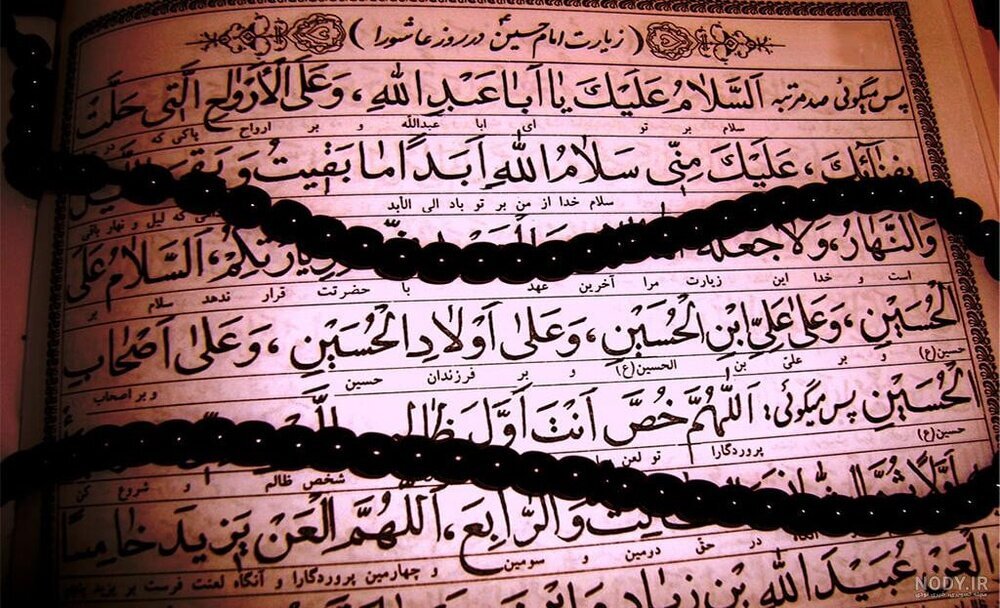 (زیارت امام حسین ع در روز عاشورا)
پس میگوئی صد مرتبه اَلسَّلامُ عَلَیْکَ یا اَبا عَبْدِ اللهِ، وَعَلَی الْاَرْواحِ الَّتی حَلَّتْ
سلام بر تو ای ابا عبدالله و بر ارواح پاکی که در
بِفِنائِکَ، عَلَیْکَ مِنّی سَلامُ اللهِ اَبَداً ما بَقیتُ وَبَقِیَ
سلام خدا از من بر تو باد الی الأبد که لیل و نهار باقی
وَالنَّهارُ، وَلا جَعَلَهُ زِیارَتِکُمْ، اَلسَّلامُ عَلَی
است و خدا این زیارت مرا آخرین عهد با حضرتت قرار ندهد سلام بر
الْحُسَیْنِ، وَعَلی عَلِیِّ ابْنِ الْحُسَیْنِ، وَعَلی اَوْلادِ الْحُسَیْنِ، وَعَلی اَصْحابِ
حسین(ع) و بر علیّ بن الحسین(ع) و بر فرزندان حسین و بر اصحاب
الْحُسَیْنِ پس میگوئی: اَللّهُمَّ خُصَّ اَنْتَ اَوَّلَ
حسین(ع) پروردگارا تو لعن شخص ظالم و شروع کن
وَالرّابِعَ، اَللّهُمَّ الْعَنْ یَزیدَ خامِساً
در حقّ دومین و سومین و چهارمین پروردگارا و آنگاه لعنت فرست بر یزید پنجم
الْعَنْ عُبَیْدَ اللهِ بْنَ زِیادٍ وَابْنَ
NODY.IR